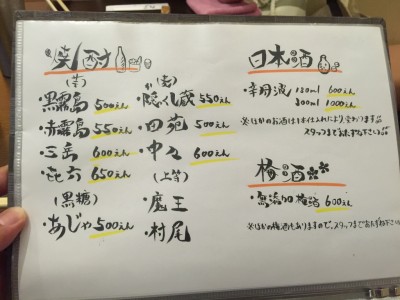 焼酎
(芋)
・黒霧島 500えん
・赤霧島 550えん
・三岳 600えん
650えん
(黒糖)
・あじゃ 500えん
(麦)
・隠し蔵 550えん
・田苑 500えん
・中々 600えん
(上等)
・魔王
・村尾
日本酒
・辛丹波 180ml 600えん
300ml 1000えん
※ほかのお酒は1本仕入れにより変わります
スタッフまでおたずね下さい
梅酒
・無添加梅酒 600えん
※ほかの梅酒もありますので、スタッフまでおたずね下さい